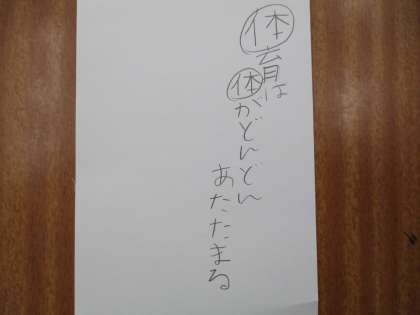 体育は
体がどんどん
あたたまる